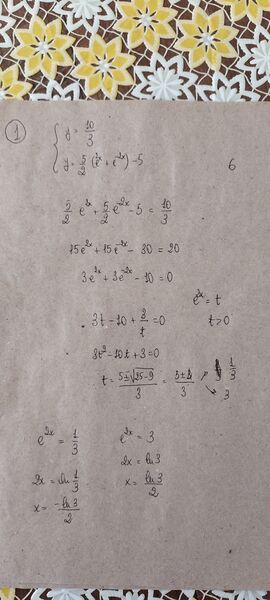 1
{ y = 10/3
y = 5/2 (e^{2x} + e^{-2x}) - 5
6
5/2 e^{2x} + 5/2 e^{-2x} - 5 = 10/3
15e^{2x} + 15e^{-2x} - 30 = 20
3e^{2x} + 3e^{-2x} - 10 = 0
e^{2x} = t
3t - 10 + 3/t = 0
t > 0
3t² - 10t + 3 = 0
t = (5 ± √(25-9))/3 = (5 ± 4)/3 ↗ 1/3
↘ 3
e^{2x} = 1/3
e^{2x} = 3
2x = ln 1/3
2x = ln 3
x = -ln 3/2
x = ln 3/2